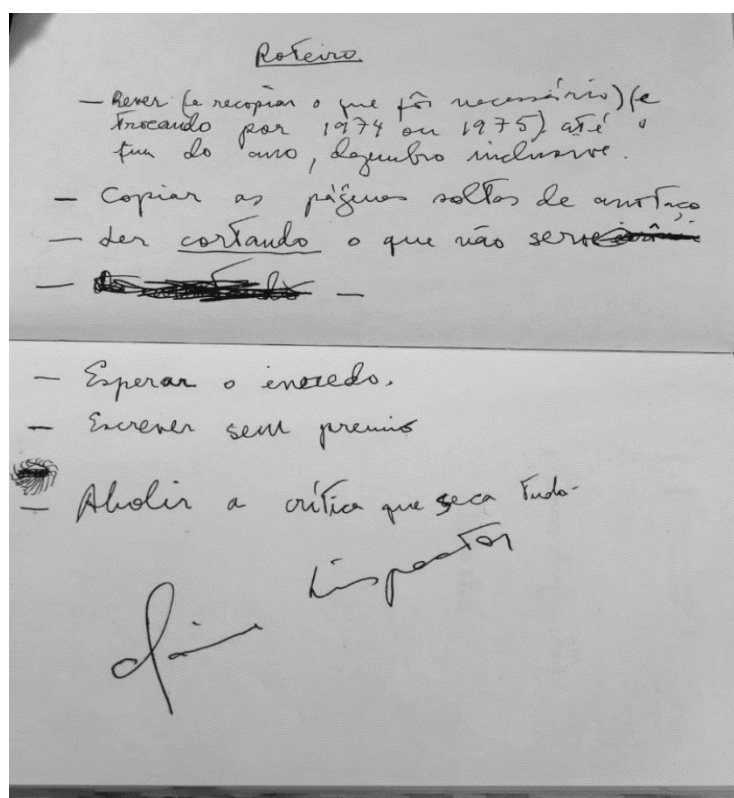 Roteiro
— Rever (e recopiar o que fôr necessário) (e
trocando por 1974 ou 1975) até o
fim do ano, dezembro inclusive.
— Copiar as páginas soltas de anotaço
— Ler cortando o que não serve
—
—
— Esperar o enredo.
— Escrever sem premio
— Abolir a crítica que seca tudo-
Lispector